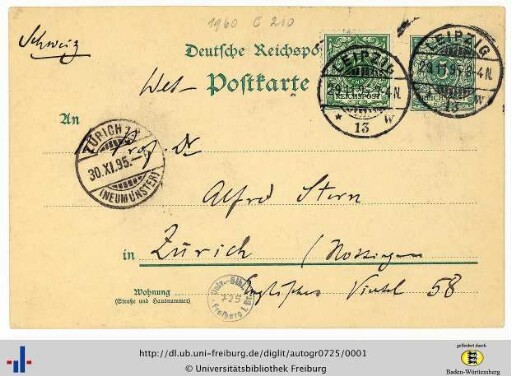 1960 G 210
Schweiz
Deutsche Reichspost
Welt-Postkarte
LEIPZIG
29.11.95.3-4N.
* 13 w
LEIPZIG
29.11.95.3-4N.
13 w
An
ZÜRICH
30.XI.95.
(NEUMÜNSTER)
Prof. Dr.
Alfred Stern
in Zürich
Wohnung Englisches Viertel 58
(Straße und Hausnummer)
775
Freiburg i. Br.
http://dl.ub.uni-freiburg.de/diglit/autogr0725/0001
© Universitätsbibliothek Freiburg
gefördert durch
Baden-Württemberg